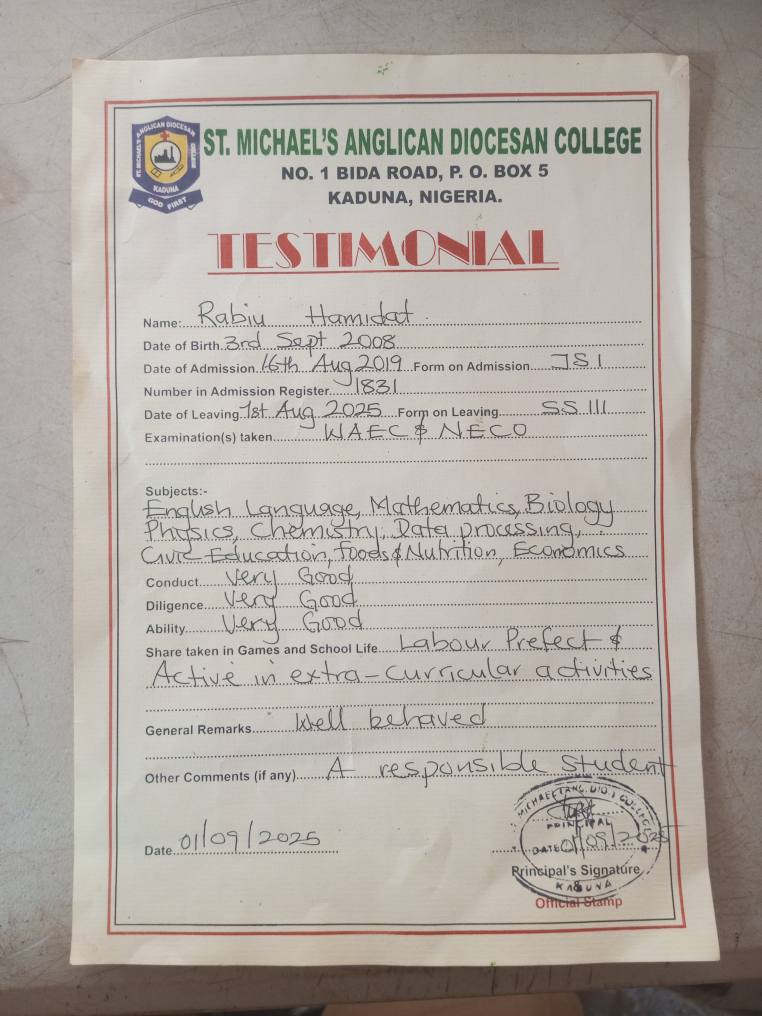 ST. MICHAEL'S ANGLICAN DIOCESAN COLLEGE
KADUNA
GOD FIRST
ST. MICHAEL'S ANGLICAN DIOCESAN COLLEGE
NO. 1 BIDA ROAD, P. O. BOX 5
KADUNA, NIGERIA.
TESTIMONIAL
Name: Rabiu Hamidat
Date of Birth 3rd Sept 2008
Date of Admission 16th Aug 2019 Form on Admission JS1
Number in Admission Register 1831
Date of Leaving 1st Aug 2025 Form on Leaving SS III
Examination(s) taken WAEC & NECO
Subjects:-
English Language, Mathematics, Biology
Physics, Chemistry, Data processing,
Civic Education, Foods & Nutrition, Economics
Conduct Very Good
Diligence Very Good
Ability Very Good
Share taken in Games and School Life Labour Prefect &
Active in extra-curricular activities
General Remarks Well behaved
Other Comments (if any) A responsible student
PRINCIPAL
Date 01/09/2025 DATE 01/09/2025
Principal's Signature
&
KADUNA
Official Stamp